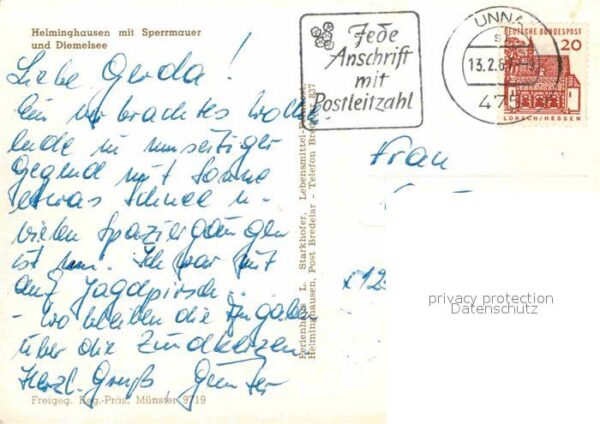 Helminghausen mit Sperrmauer
und Diemelsee
Liebe Gerda!
Ein verbrachtes Wochen-
ende in umseitiger
Gegend mit Sonne
etwas Schnee u.
vielen Spaziergängen
ist um. Ich war mit
auf Jagdpirsch..
- wo bleiben die Angaben
über die Zündkerzen
Herzl. Gruß Günter
Freigeg. Reg.-Präs. Münster 9719
Ferienhaus L. Starkhofer, Lebensmittel-
Helminghausen, Post Bredelar - Telefon Bredelar 837
Jede
Anschrift
mit
Postleitzahl
UNNA
13.2.6
475
DEUTSCHE BUNDESPOST
20
LORSCH/HESSEN
Frau
privacy protection
Datenschutz